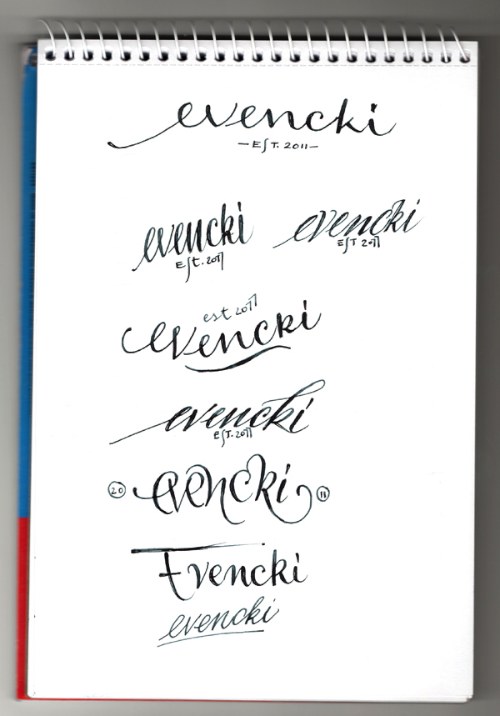 evencki
— EST. 2011 —
evencki
Est. 2011
evencki
EST 2011
est 2011
evencki
evencki
EST. 2011
20 evencki 11
Evencki
evencki